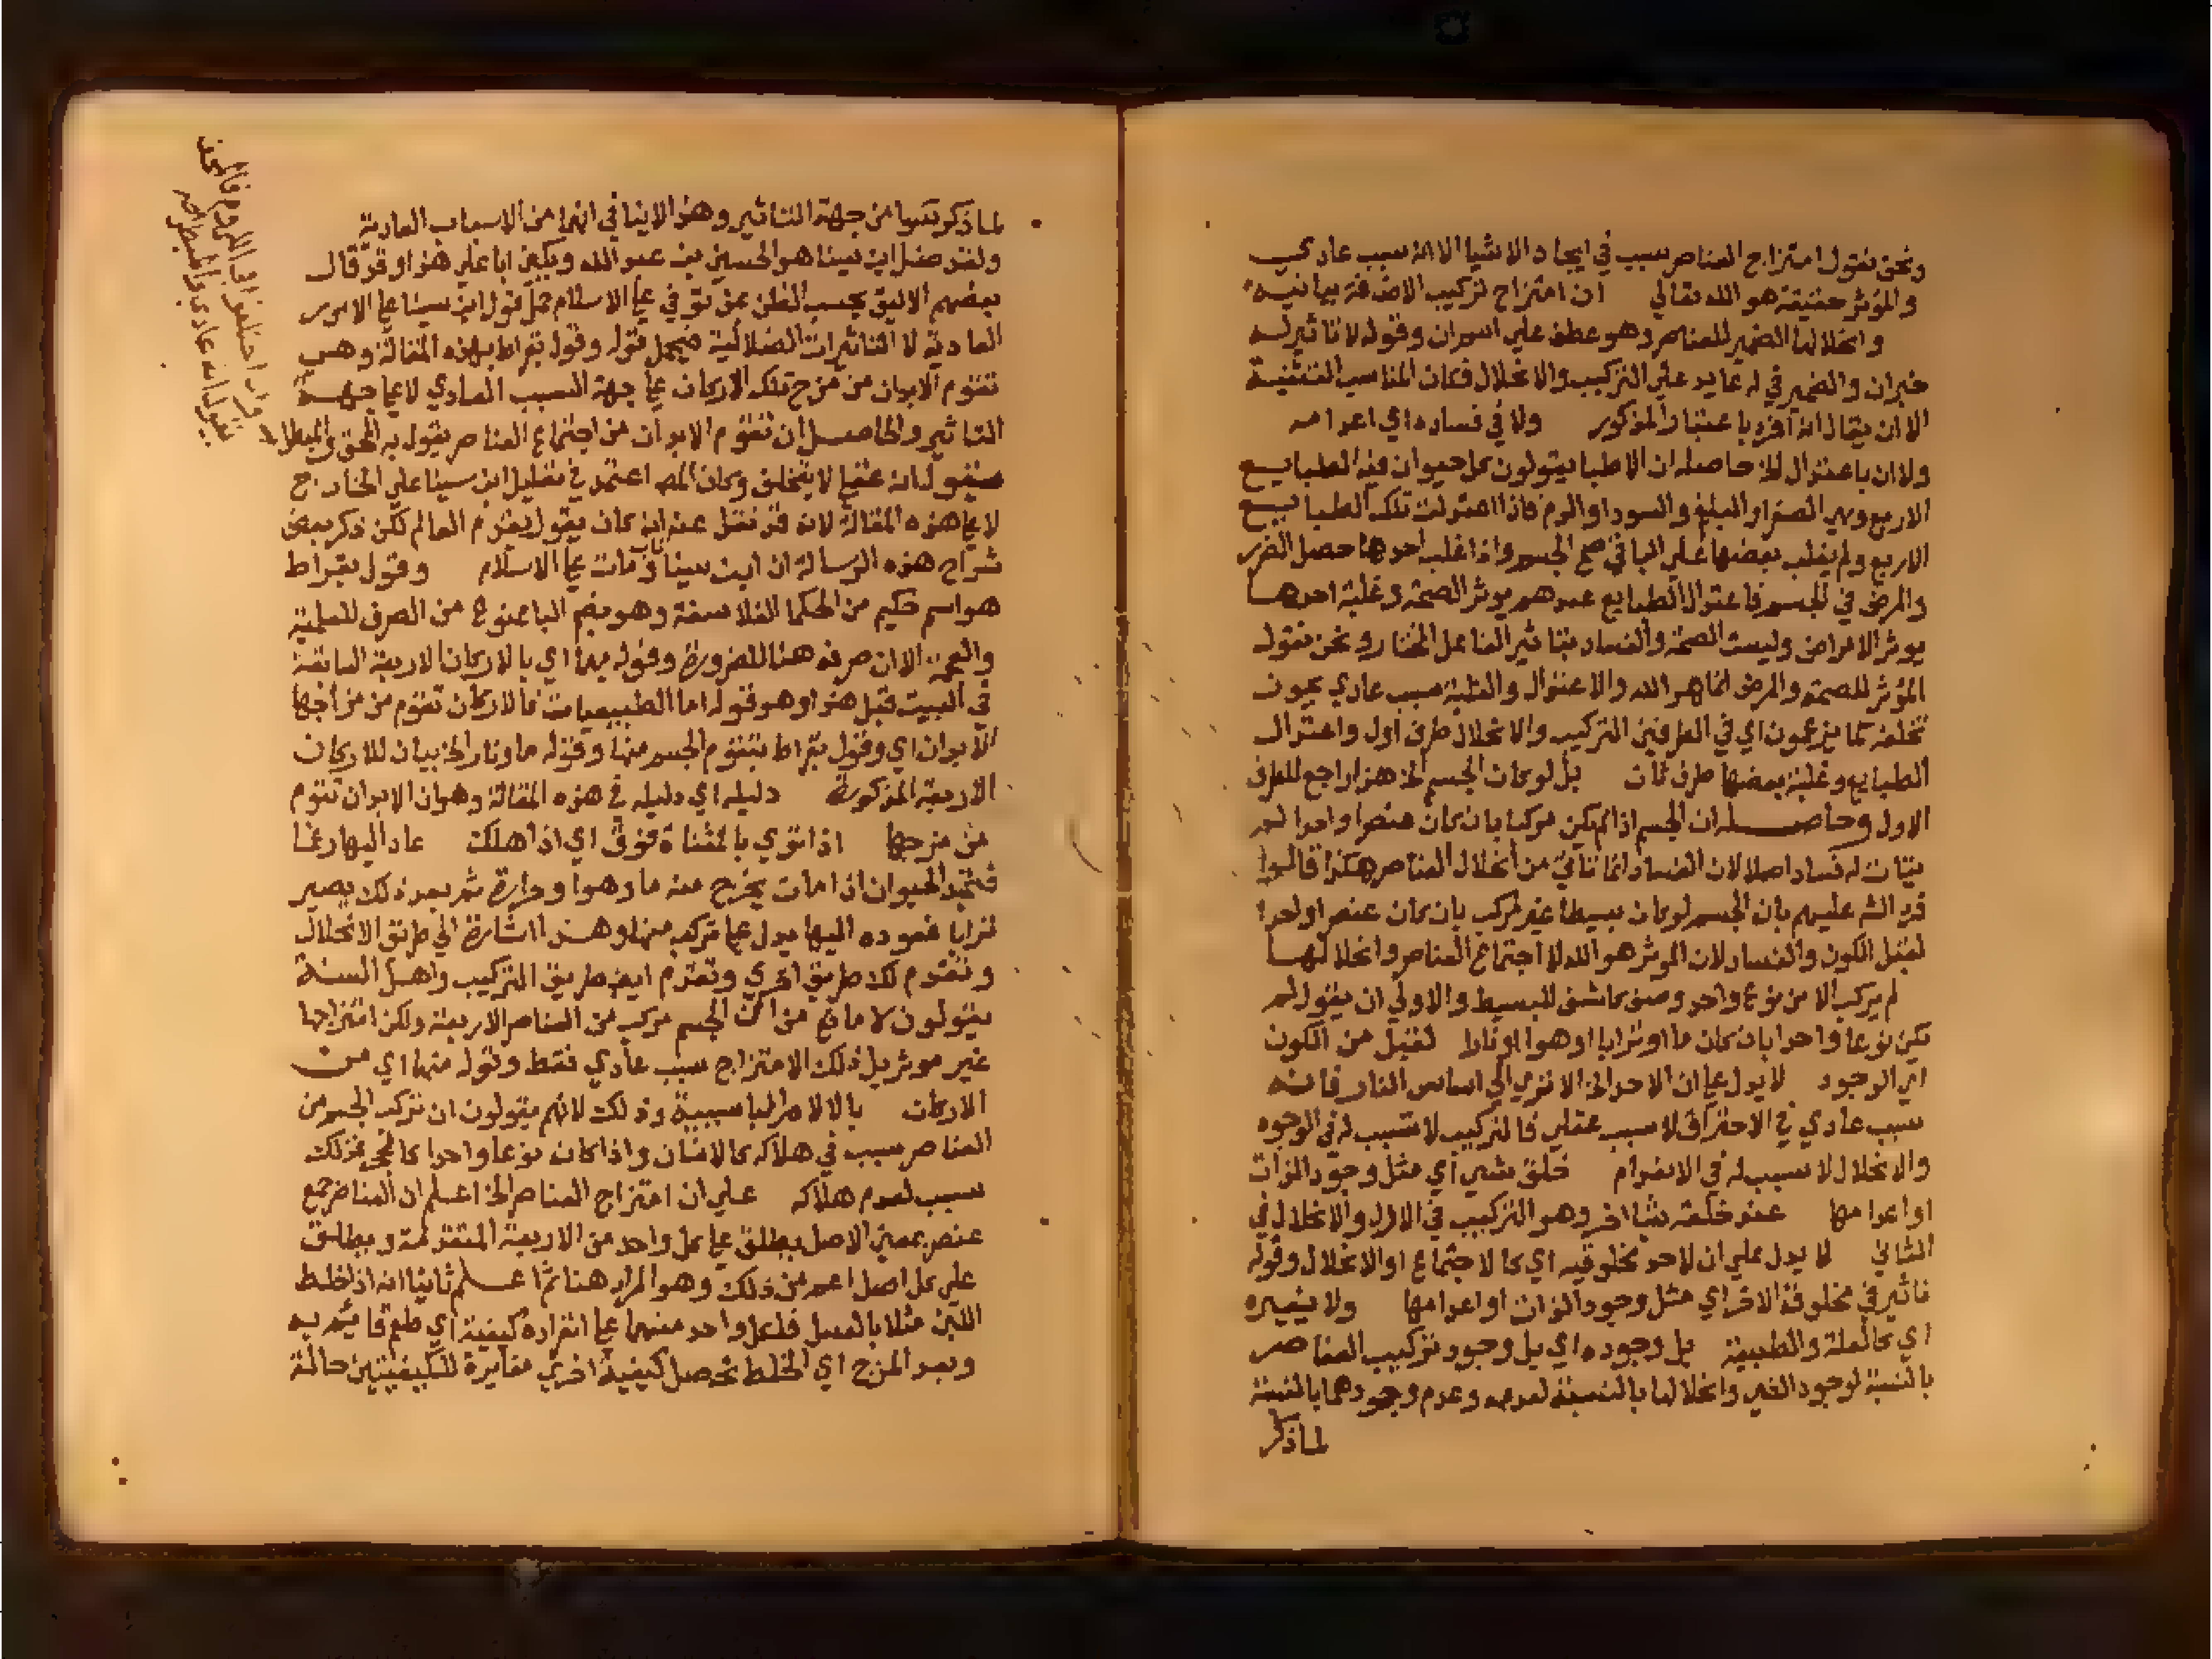 ونحن نقول امتزاج العناصر سبب في ايجاد الاشيا الا انه سبب عادي
والمؤثر حقيقة هو الله تعالي ان امتزاج تركيب الاضافة بيانية
وانحلالها الضمير للعناصر وهو عطف علي اسم ان وقوله لا تاثير له
خبر ان والضمير في له عايد علي التركيب والانحلال فكان المناسب التثنية
الا ان يقال انه افرد باعتبار المذكور ولا في فساده اي اعدامه
ولا ان باعتدال الخ حاصله ان الاطبا يقولون كل حيوان فيه الطبايع
الاربع وهي الصفرا والبلغم والسودا والدم فاذا اعتدلت تلك الطبايع
الاربع ولم يغلب بعضها علي الباقي صح الجسم واذا غلب احدها حصل الضرر
والمرض في الجسم فاعتدال الطبايع عندهم يوثر الصحة وغلبة احدها
يوثر الامراض وليست الصحة والفساد بتاثير الفاعل المختار ونحن نقول
المؤثر للصحة والمرض انما هو الله والاعتدال والغلبة سبب عادي يجوز
تخلفه كما يزعمون اي في الطرفين التركيب والانحلال طرف اول واعتدال
الطبايع وغلبة بعضها طرف ثان بل لو كان الجسم الخ هذا راجع للطرف
الاول وحاصله ان الجسم اذا لم يكن مركبا بان كان عنصرا واحدا لم
يتات له فساد اصلا لان الفساد انما تاتي من انحلال العناصر هكذا قالوا
فرد الشم عليهم بان الجسم لو كان بسيطا غير مركب بان كان عنصرا واحدا
لقبل الكون والفساد لان الموثر هو الله لا اجتماع العناصر وانحلالها
لم يركب الا من نوع واحد وصف كاشف للبسيط والاولي ان يقول لم
يكن نوعا واحدا بان كان ماا او ترابا او هوا او نارا لقبل من الكون
اي الوجود لا يدل علي ان الاحد الخ الا تري الي اساس النار فانه
سبب عادي في الاحتراق لا سبب عقلي فالتركيب لا تسبب له في الوجود
والانحلال لا سبب له في الانعدام خلق شي اي مثل وجود الذات
او اعدامها عند خلقه شيا اخر وهو التركيب في الاول والانحلال في
الثاني لا يدل علي ان لاحد مخلوقيه اي كالاجتماع او الانحلال وقوله
تاثير في مخلوقه الاخر اي مثل وجود الذات او اعدامها ولا يغيره
اي كالعلة والطبيعة بل وجوده اي بل وجود تركيب العناصر
بالنسبة لوجود الغير وانحلالها بالنسبة لعدمه وعدم وجودهما بالنسبة
لما ذكر
لما ذكر ليسوا من جهة التاثير وهذا لا ينافي انها من الاسباب العادية
ولقد ضل ابن سينا هو الحسين بن عبد الله ويكني ابا علي هذا وقد قال
بعضهم الاليق بحسب الظن عن توفي علي الاسلام حمل قول ابن سينا علي الامور
العادية لا التاثيرات الضلالية فيحمل قوله وقول بقراط بهذه المقالة وهي
تقوم الابدان من مزج تلك الاركان علي جهة السبب العادي لا علي جهة
التاثير والحاصل ان تقوم الابدان من اجتماع العناصر يقول به المحق والمبطل
فيقول انه عقلي لا يتخلف وكان المصـ اعتمد في تضليل ابن سينا علي الخارج
لا علي هذه المقالة لانه قد نقل عنه انه كان يقول بقدم العالم لكن ذكر بعض
شراح هذه الرسالة ان ابن سينا تاب ومات علي الاسلام وقول بقراط
هو اسم حكيم من الحكما الفلاسفة وهو بضم البا ممنوع من الصرف للعلمية
والعجمة الا ان صرفه هنا للضرورة وقوله بها اي بالاركان الاربعة السابقة
في البيت قبل هذا وهو قوله اما الطبيعيات فالاركان تقوم من مزاجها
الابدان اي وقول بقراط بتقوم الجسم منها وقوله ما ونار الخ بيان للاركان
الاربعة المذكورة دليله اي دليله في هذه المقالة وهو ان الابدان تقوم
من مزجها اذا توي بالمثناة فوق اي اذا هلك عاد اليها رغما
فتجد الحيوان اذا مات يخرج منه ما وهوا وحرارة ثم بعد ذلك يصير
ترابا فعوده اليها يدل علي تركبه منها وهذا اشارة الي طريق الانحلال
وتقدم لك طريق اخري وتقدم ايضا طريق التركيب واهل السنة
يقولون لا مانع من ان الجسم مركب من العناصر الاربعة ولكن امتزاجها
غير موثر بل ذلك الامتزاج سبب عادي فقط وقوله منها اي من
الاركان بالالام البا سببية وذلك لانهم يقولون ان تركب الجسم من
العناصر سبب في هلاكه كالانسان واذا كان نوعا واحدا كالحجر فذلك
سبب لعدم هلاكه علي ان امتزاج العناصر الخ اعلم ان العناصر جمع
عنصر بمعني الاصل يطلق علي كل واحد من الاربعة المتقدمة ويطلق
علي كل اصل اعم من ذلك وهو المراد هنا ثم اعلم ثانيا انه اذا خلط
اللبن مثلا بالعسل فلكل واحد منهما علي انفراده كيفية اي طبع قايم به
وبعد المزج اي الخلط تحصل كيفية اخري مغايرة للكيفيتين حالة
اختلفوا في اللزوم فالمحق
يقول انه عادي والمبطل